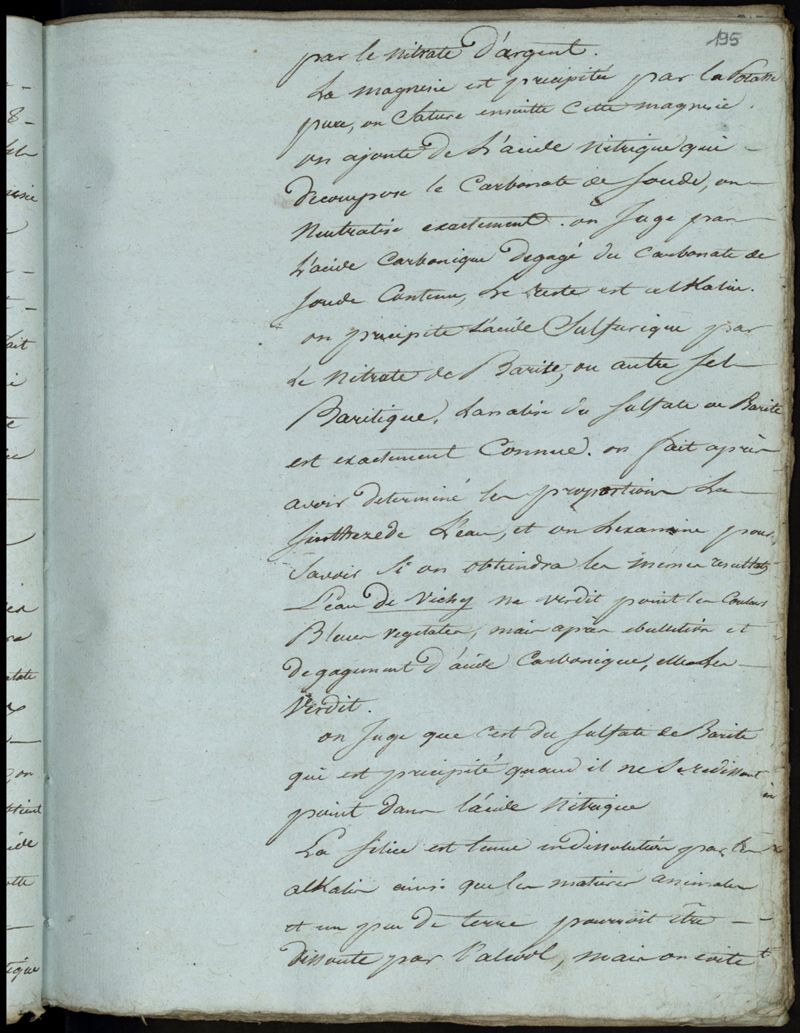 195
par le nitrate d'argent.
La magnesie est precipitée par la Potasse
pure, on sature ensuitte cette magnesie.
on ajoute de l'acide nitrique qui
decompose le Carbonate de soude, on
Neutralise exactement. on juge par
L'acide Carbonique degagé du Carbonate de
soude Contenu, Le reste est alkalin.
on precipite l'acide Sulfurique par
Le nitrate de Barite, ou autre sel
Baritique, Lanalise du sulfate de Barite
est exactement Connue. on fait après
avoir determiné les proportions La
sinthezede L'eau, et on Lexamine pour
savoir si on obtiendra les mèmes resultats
L'eau de Vichy ne verdit point les Couleurs
Bleues vegetales, mais après ebullition et
degagement d'acide Carbonique, elle les
Verdit.
on juge que c'est du sulfate de Barite
qui est precipité quand il ne se redissout
point dans l'acide nitrique
La silice est tenue en dissolution par les
alkalis ainsi que les matieres animales
et un peu de terre pourroit être
dissoute par l'alcool, mais on evite